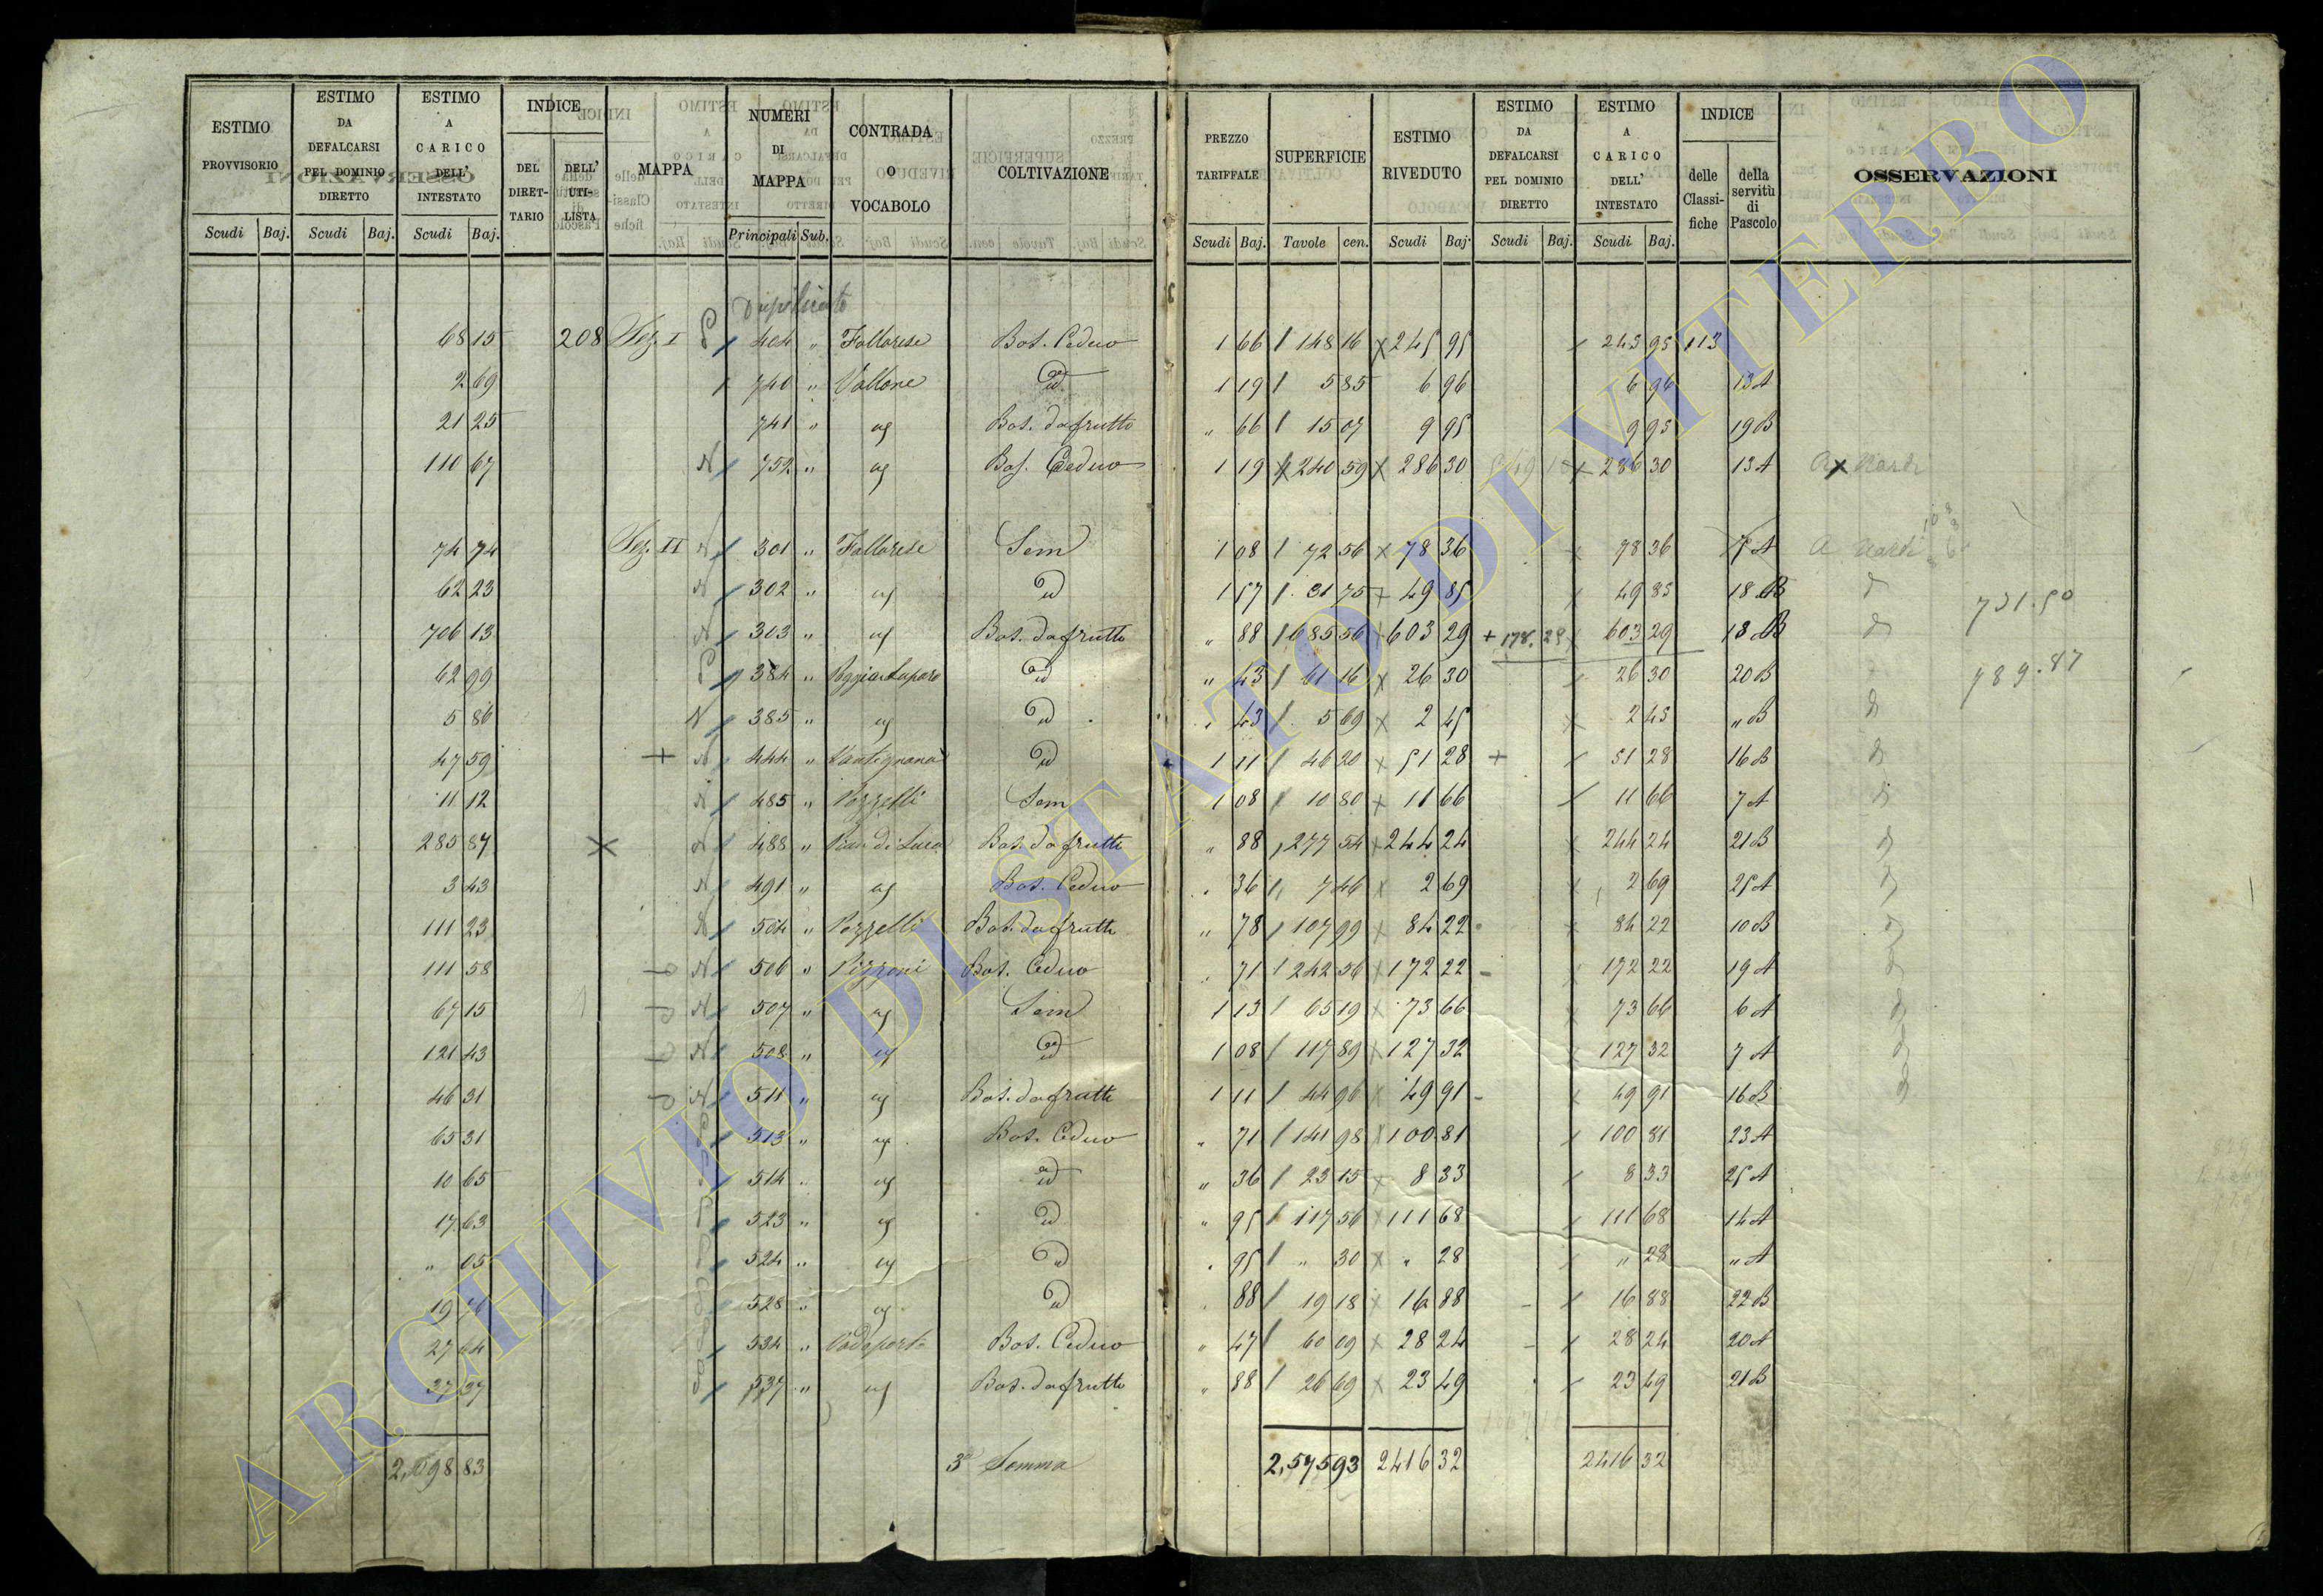 ESTIMO PROVVISORIO Scudi Baj.
ESTIMO DA DEFALCARSI PEL DOMINIO DIRETTO Scudi Baj.
ESTIMO A CARICO DELL' INTESTATO Scudi Baj.
INDICE DEL DIRET-TARIO DELL' UTI-LISTA
MAPPA
NUMERI DI MAPPA Principali Sub.
CONTRADA O VOCABOLO
COLTIVAZIONE
PREZZO TARIFFALE Scudi Baj.
SUPERFICIE Tavole cen.
ESTIMO RIVEDUTO Scudi Baj.
ESTIMO DA DEFALCARSI PEL DOMINIO DIRETTO Scudi Baj.
ESTIMO A CARICO DELL' INTESTATO Scudi Baj.
INDICE delle Classi-fiche della servitù di Pascolo
OSSERVAZIONI
Duplicato
68 15 208 Sez. I 404 " Fallarese Bos. Ceduo 1 66 148 16 245 95 245 95 113
2 69 740 " Vallone id 1 19 5 85 6 96 6 96 13 A
21 25 741 " id Bos. da frutto " 66 15 07 9 95 9 95 19 B
110 67 N 752 " id Bos. Ceduo 1 19 240 59 286 30 286 30 13 A A Nardi
74 74 Sez. II N 301 " Fallarese Sem 1 08 72 56 78 36 78 36 7 A A Nardi
62 23 N 302 " id id 1 57 31 75 49 85 49 85 18 B 731.50
706 13 N 303 " id Bos. da frutto " 88 685 56 603 29 + 178.29 603 29 18 B
62 99 384 " id " 43 61 16 26 30 26 30 20 B 789.87
5 86 N 385 " id id " 43 5 69 2 45 2 45 " B
47 59 + N 444 " id 1 11 46 20 51 28 + 51 28 16 B
11 12 N 485 " Pozzelli Sem 1 08 10 80 11 66 11 66 7 A
285 87 N 488 " Pian di Luca Bos. da frutto " 88 277 54 244 24 244 24 21 B
3 43 N 491 " id Bos. Ceduo " 36 7 46 2 69 2 69 25 A
111 23 N 504 " Pozzelli Bos. da frutto " 78 107 99 84 22 84 22 10 B
111 58 N 506 " Pizzoni Bos. Ceduo " 71 242 56 172 22 172 22 19 A
67 15 N 507 " id Sem 1 13 65 19 73 66 73 66 6 A
121 43 N 508 " id id 1 08 117 89 127 32 127 32 7 A
46 31 N 511 " id Bos. da frutto 1 11 44 96 49 91 49 91 16 B
65 31 513 " id Bos. Ceduo " 71 141 98 100 81 100 81 23 A
10 65 514 " id id " 36 23 15 8 33 8 33 25 A
17 63 523 " id id " 95 117 56 111 68 111 68 14 A
" 05 524 " id id " 95 " 30 " 28 " 28 " A
528 " id id " 88 19 18 16 88 16 88 22 B
27 04 534 " Bos. Ceduo " 47 60 09 28 24 28 24 20 A
37 37 537 " id Bos. da frutto " 88 26 69 23 49 23 49 21 B
2,098 83 3ª Somma 2,575 93 2416 32 2416 32
ARCHIVIO DI STATO DI VITERBO